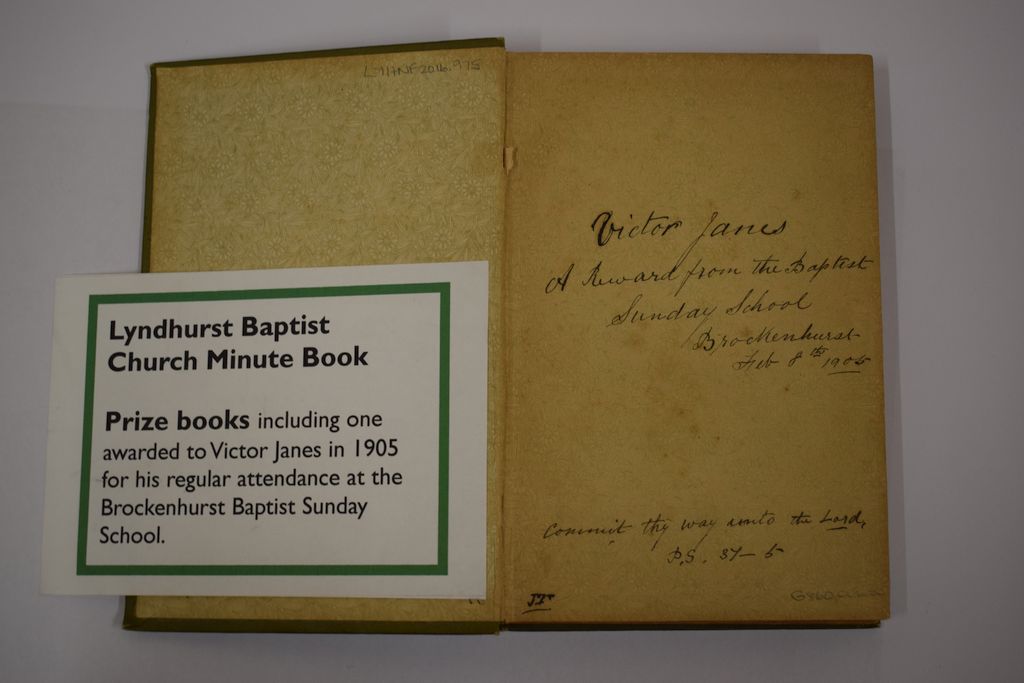 Lyndhurst Baptist
Church Minute Book
Prize books including one
awarded to Victor Janes in 1905
for his regular attendance at the
Brockenhurst Baptist Sunday
School.
Victor Janes
A Reward from the Baptist
Sunday School
Brockenhurst
Feb 8th 1905
Commit thy way unto the Lord,
P.S. 37-5